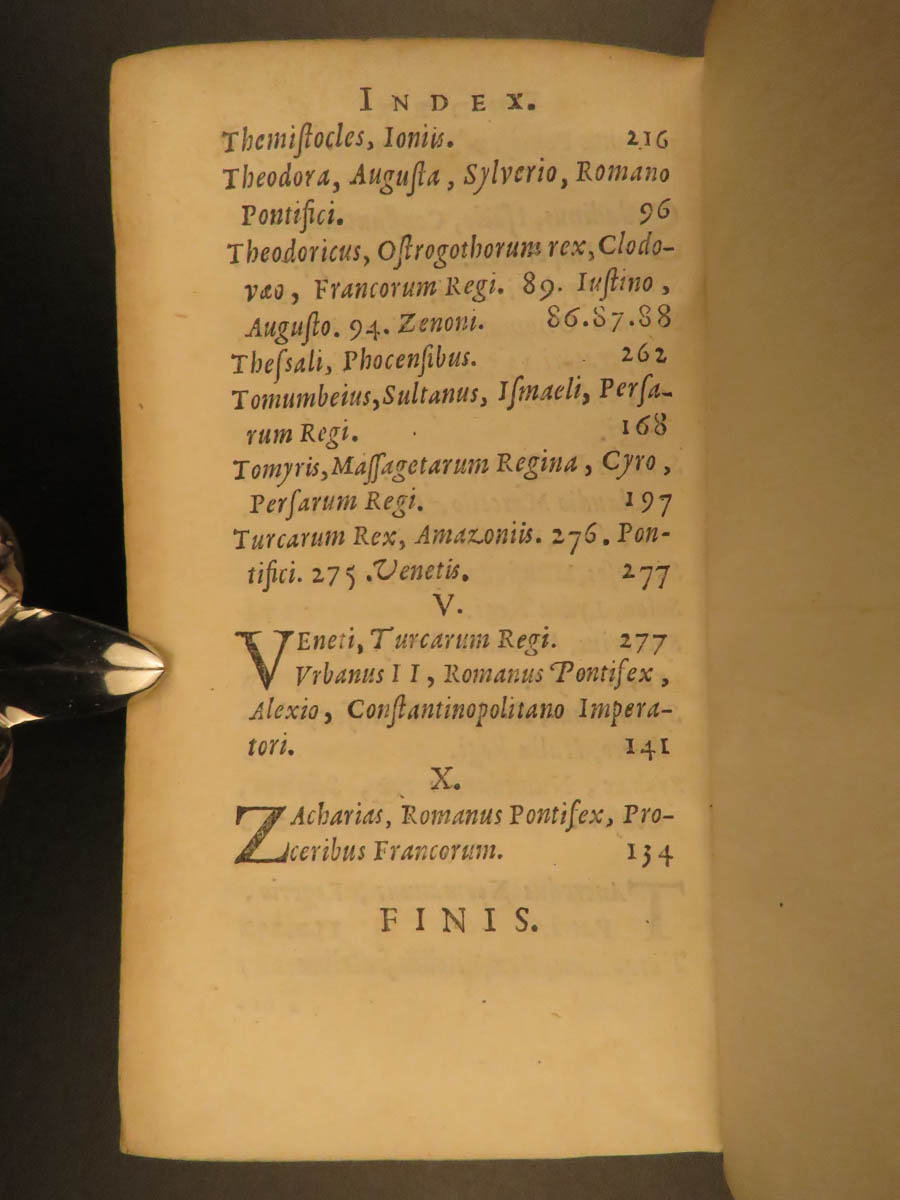 INDEX.
Themiſtocles, Ioniis. 216
Theodora, Auguſta, Sylverio, Romano
Pontifici. 96
Theodoricus, Oſtrogothorum rex, Clodo-
væo, Francorum Regi. 89. Iuſtino,
Auguſto. 94. Zenoni. 86.87.88
Theſsali, Phocenſibus. 262
Tomumbeius, Sultanus, Iſmaeli, Perſa-
rum Regi. 168
Tomyris, Maſſagetarum Regina, Cyro,
Perſarum Regi. 197
Turcarum Rex, Amazoniis. 276. Pon-
tifici. 275. Venetis. 277
V.
VEneti, Turcarum Regi. 277
Vrbanus II, Romanus Pontifex,
Alexio, Conſtantinopolitano Impera-
tori. 141
X.
ZAcharias, Romanus Pontifex, Pro-
ceribus Francorum. 134
FINIS.